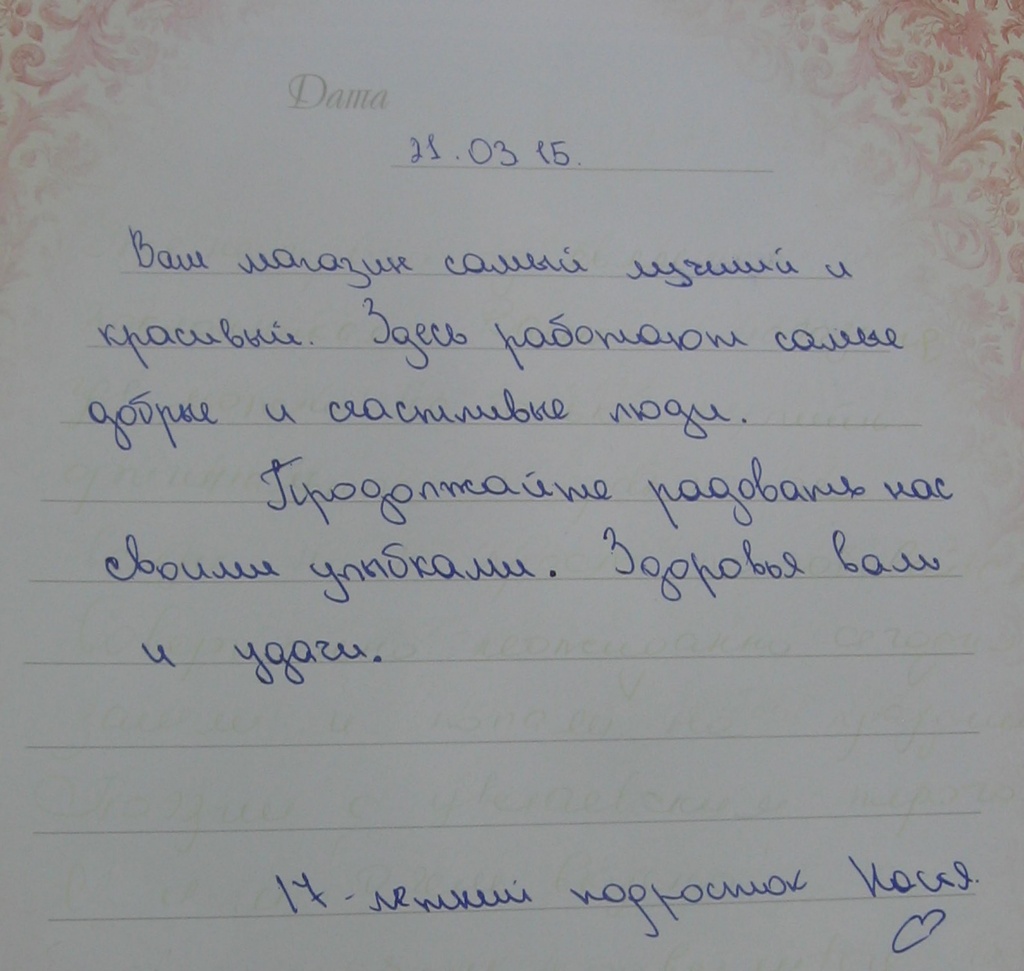 Дата
21.03 15.
Ваш магазин самый лучший и
красивый. Здесь работают самые
добрые и счастливые люди.
Продолжайте радовать нас
своими улыбками. Здоровья вам
и удачи.
17-летний подросток